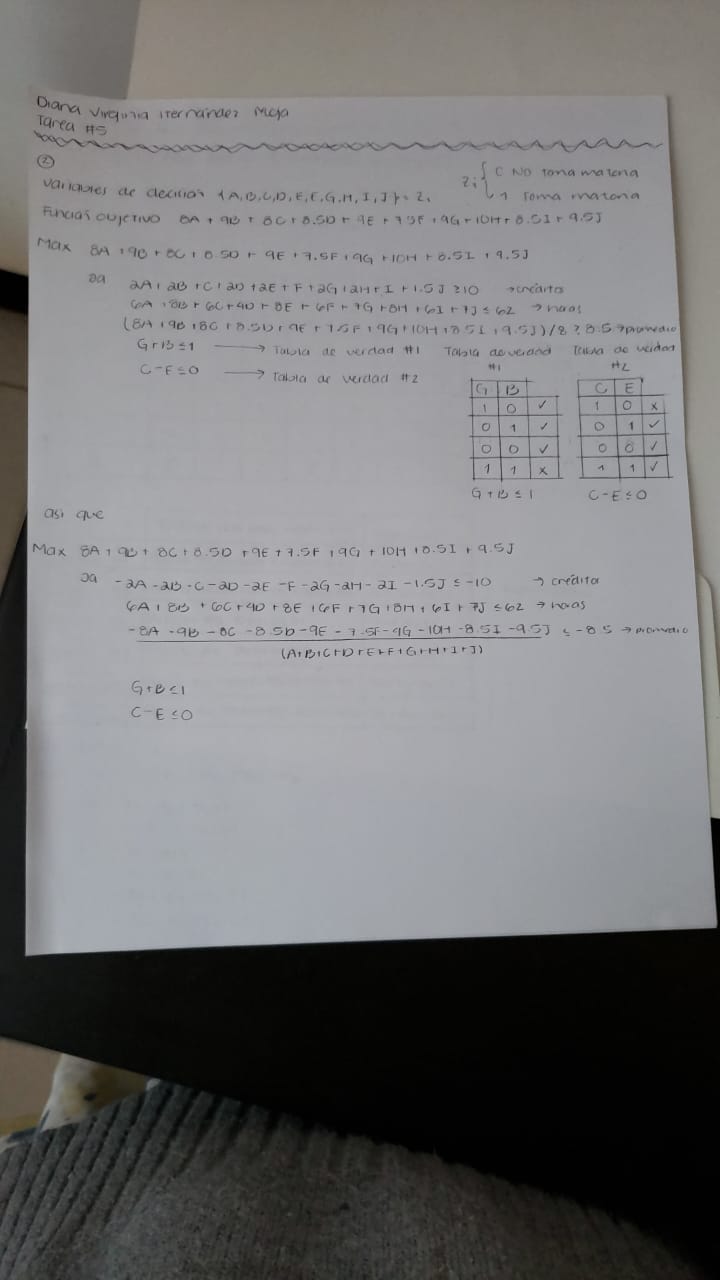 Diana Virginia Hernández Mejia
Tarea #5
②
Variables de decisión {A,B,C,D,E,F,G,H,I,J} = Zi
Zi { 0 NO toma materia
1 Toma materia
Función objetivo 8A + 9B + 8C + 8.5D + 9E + 7.5F + 9G + 10H + 8.5I + 9.5J
Max 8A + 9B + 8C + 8.5D + 9E + 7.5F + 9G + 10H + 8.5I + 9.5J
sa
2A + 2B + C + 2D + 2E + F + 2G + 2H + I + 1.5J ≥ 10 → créditos
6A + 8B + 6C + 4D + 8E + 6F + 7G + 8H + 6I + 7J ≤ 62 → horas
(8A + 9B + 8C + 8.5D + 9E + 7.5F + 9G + 10H + 8.5I + 9.5J) / 8 ≥ 8.5 → promedio
G + B ≤ 1 → Tabla de verdad #1
C - E ≤ 0 → Tabla de verdad #2
Tabla de verdad #1
G B
1 0 ✓
0 1 ✓
0 0 ✓
1 1 x
G + B ≤ 1
Tabla de verdad #2
C E
1 0 x
0 1 ✓
0 0 ✓
1 1 ✓
C - E ≤ 0
asi que
Max 8A + 9B + 8C + 8.5D + 9E + 7.5F + 9G + 10H + 8.5I + 9.5J
sa
-2A - 2B - C - 2D - 2E - F - 2G - 2H - 2I - 1.5J ≤ -10 → crédito
6A + 8B + 6C + 4D + 8E + 6F + 7G + 8H + 6I + 7J ≤ 62 → horas
-8A - 9B - 8C - 8.5D - 9E - 7.5F - 9G - 10H - 8.5I - 9.5J ≤ -8.5 → promedio
(A+B+C+D+E+F+G+H+I+J)
G + B ≤ 1
C - E ≤ 0